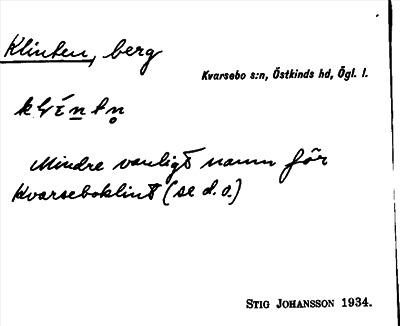 Klinten, berg
Kvarsebo s:n, Östkinds hd, Ögl. l.
Mindre vanligt namn för
Kvarseboklint (se d.o.)
STIG JOHANSSON 1934.